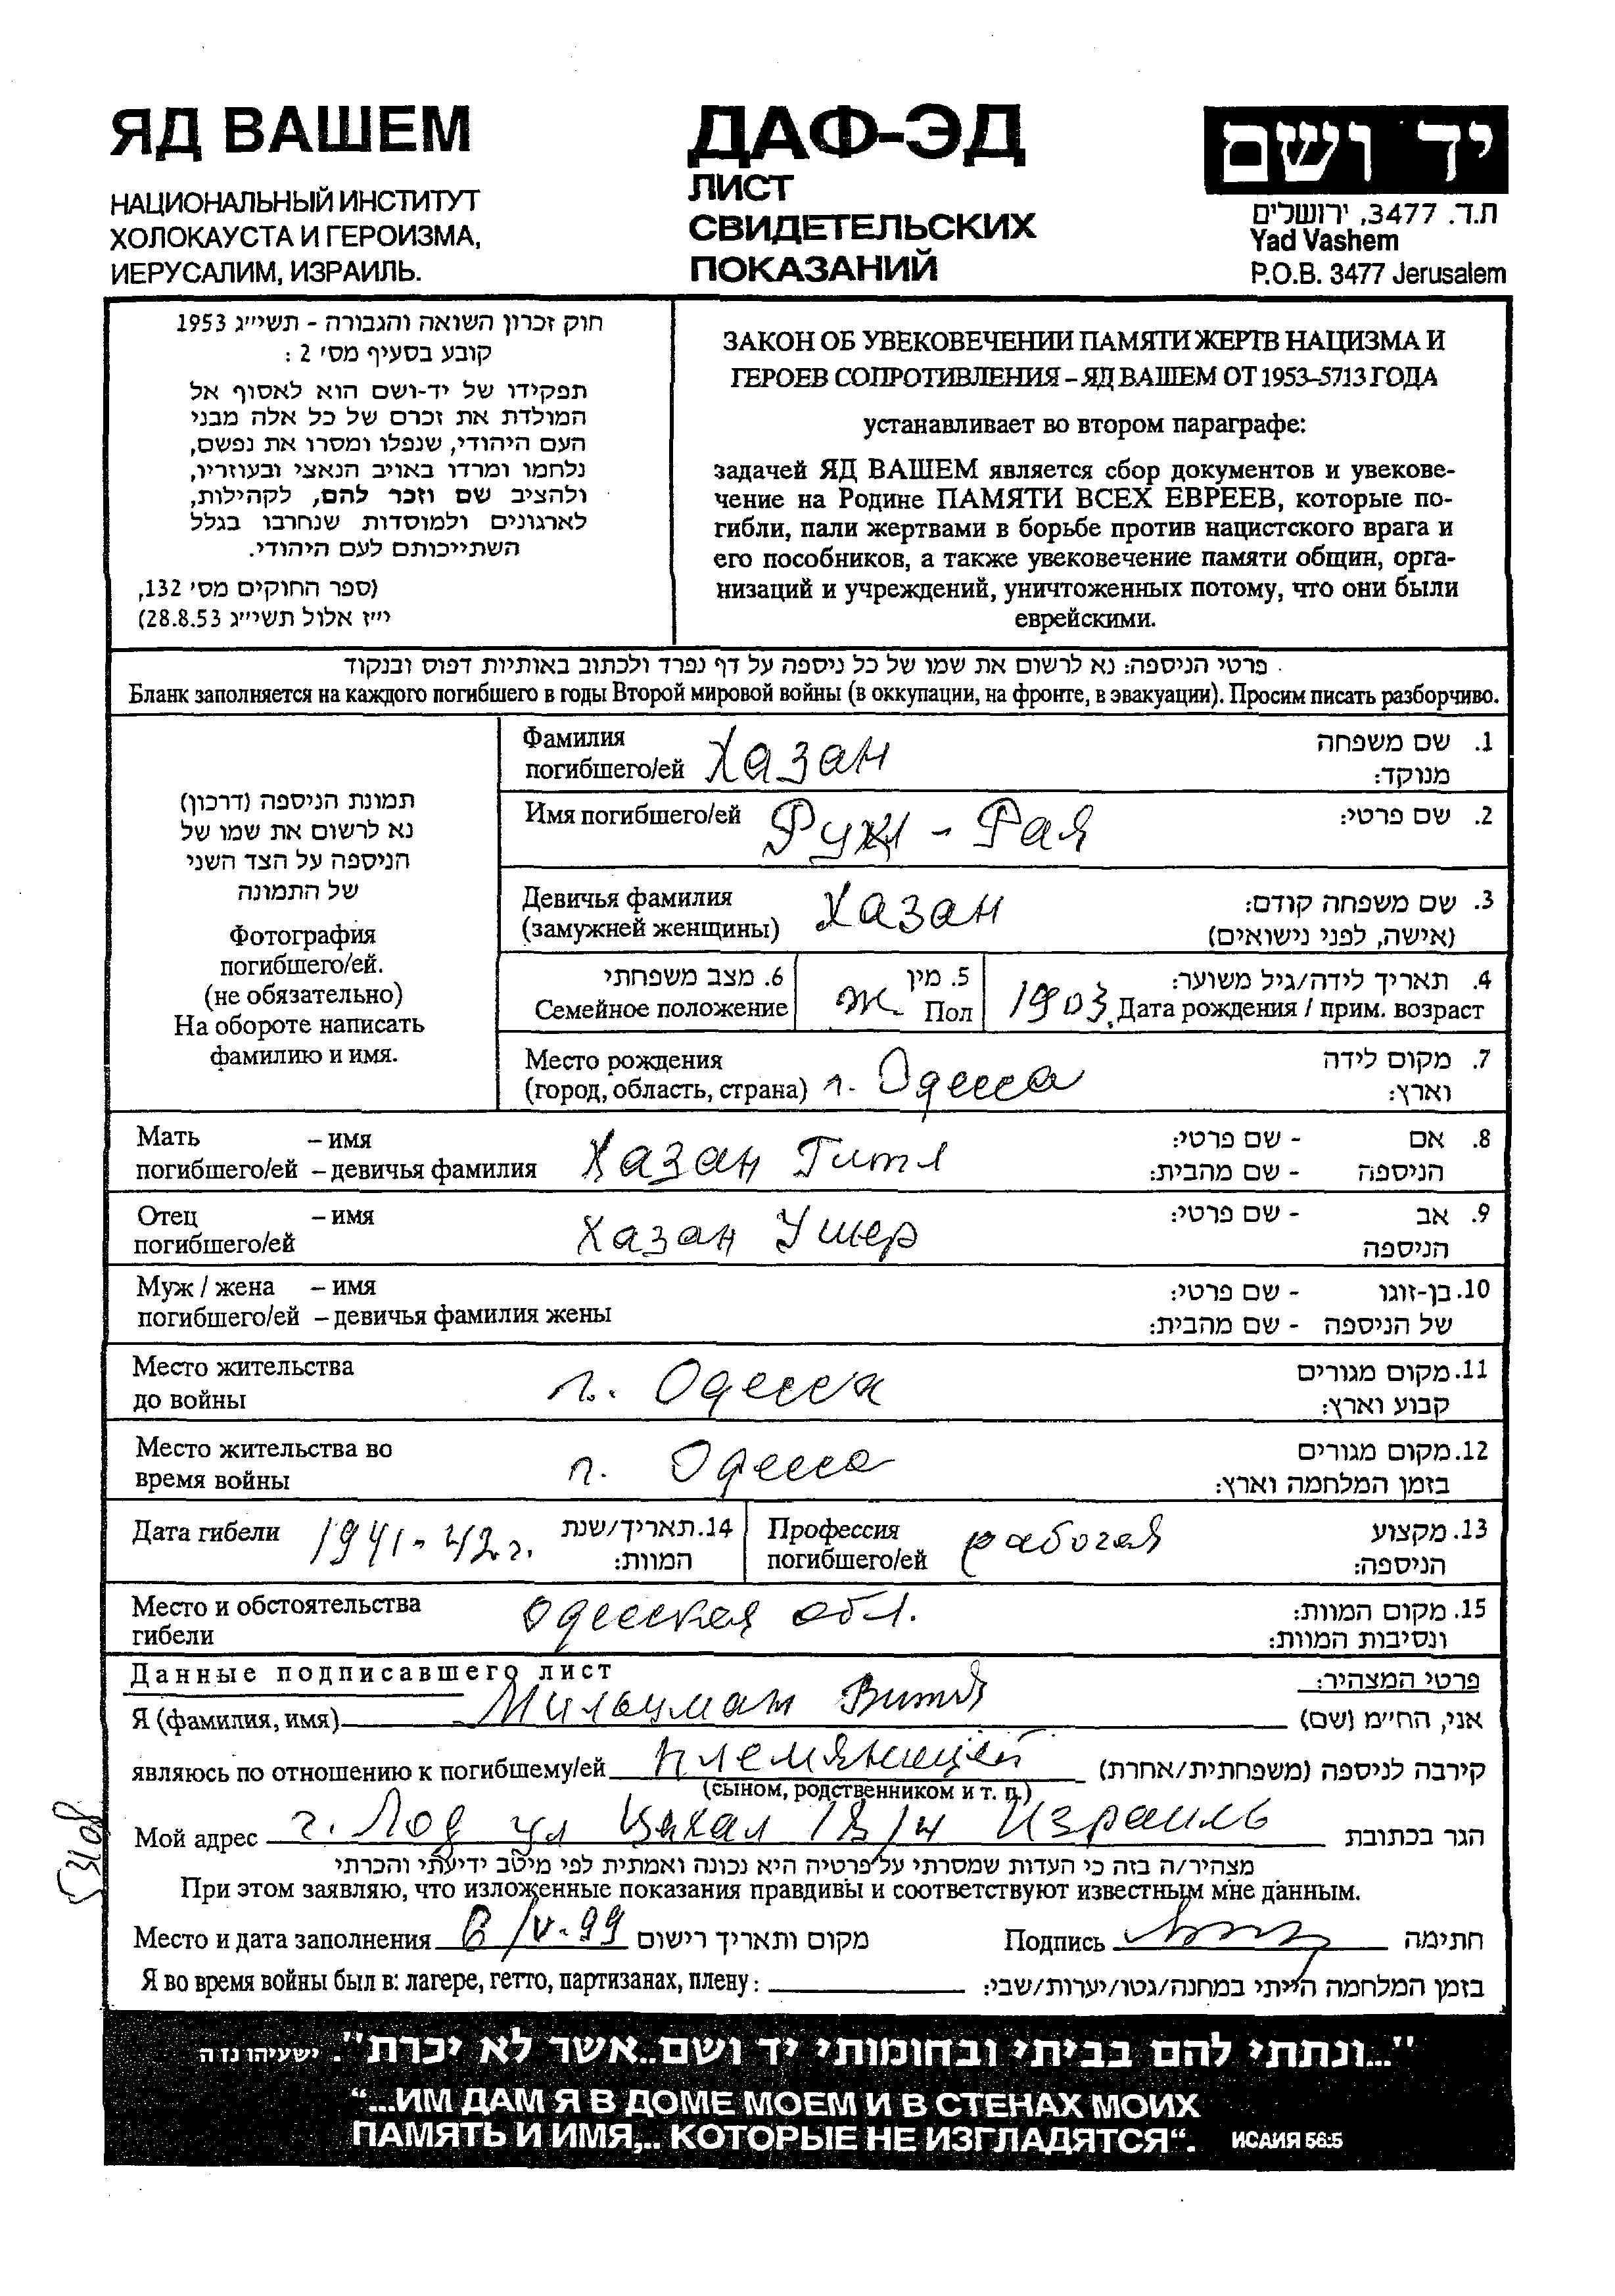 ЯД ВАШЕМ
НАЦИОНАЛЬНЫЙ ИНСТИТУТ
ХОЛОКАУСТА И ГЕРОИЗМА,
ИЕРУСАЛИМ, ИЗРАИЛЬ.
ДАФ-ЭД
ЛИСТ
СВИДЕТЕЛЬСКИХ
ПОКАЗАНИЙ
יד ושם
ת.ד. 3477, ירושלים
Yad Vashem
P.O.B. 3477 Jerusalem
חוק זכרון השואה והגבורה - תשי״ג 1953
קובע בסעיף מס׳ 2 :
תפקידו של יד-ושם הוא לאסוף אל
המולדת את זכרם של כל אלה מבני
העם היהודי, שנפלו ומסרו את נפשם,
נלחמו ומרדו באויב הנאצי ובעוזריו,
ולהציב שם וזכר להם, לקהילות,
לארגונים ולמוסדות שנחרבו בגלל
השתייכותם לעם היהודי.
(ספר החוקים מס׳ 132,
י״ז אלול תשי״ג 28.8.53)
ЗАКОН ОБ УВЕКОВЕЧЕНИИ ПАМЯТИ ЖЕРТВ НАЦИЗМА И
ГЕРОЕВ СОПРОТИВЛЕНИЯ – ЯД ВАШЕМ ОТ 1953–5713 ГОДА
устанавливает во втором параграфе:
задачей ЯД ВАШЕМ является сбор документов и увекове-
чение на Родине ПАМЯТИ ВСЕХ ЕВРЕЕВ, которые по-
гибли, пали жертвами в борьбе против нацистского врага и
его пособников, а также увековечение памяти общин, орга-
низаций и учреждений, уничтоженных потому, что они были
еврейскими.
פרטי הניספה: נא לרשום את שמו של כל ניספה על דף נפרד ולכתוב באותיות דפוס ובנקוד
Бланк заполняется на каждого погибшего в годы Второй мировой войны (в оккупации, на фронте, в эвакуации). Просим писать разборчиво.
תמונת הניספה (דרכון)
נא לרשום את שמו של
הניספה על הצד השני
של התמונה
Фотография
погибшего/ей.
(не обязательно)
На обороте написать
фамилию и имя.
Фамилия
погибшего/ей Хазан
1. שם משפחה
מנוקד:
Имя погибшего/ей Рухл - Рая 2. שם פרטי:
Девичья фамилия
(замужней женщины) Хазан
3. שם משפחה קודם:
(אישה, לפני נישואים)
6. מצב משפחתי
Семейное положение
5. מין
Пол ж
4. תאריך לידה/גיל משוער:
1903. Дата рождения / прим. возраст
Место рождения
(город, область, страна) г. Одесса
7. מקום לידה
וארץ:
Мать – имя
погибшего/ей – девичья фамилия Хазан Гитл
8. אם - שם פרטי:
הניספה - שם מהבית:
Отец – имя
погибшего/ей Хазан Ушер
9. אב - שם פרטי:
הניספה
Муж / жена – имя
погибшего/ей – девичья фамилия жены
10. בן-זוגו - שם פרטי:
של הניספה - שם מהבית:
Место жительства
до войны г. Одесса
11. מקום מגורים
קבוע וארץ:
Место жительства во
время войны г. Одесса
12. מקום מגורים
בזמן המלחמה וארץ:
Дата гибели 1941-42 г.
14. תאריך/שנת
המוות:
Профессия
погибшего/ей рабочая
13. מקצוע
הניספה:
Место и обстоятельства
гибели Одесская обл.
15. מקום המוות:
ונסיבות המוות:
Данные подписавшего лист פרטי המצהיר:
Я (фамилия, имя) Вита אני, החי״מ (שם)
являюсь по отношению к погибшему/ей племянницей קירבה לניספה (משפחתית/אחרת)
(сыном, родственником и т. п.)
Мой адрес г. Лод ул Цахал 18/4 Израиль הגר בכתובת
מצהיר/ה בזה כי העדות שמסרתי על פרטיה היא נכונה ואמתית לפי מיטב ידיעתי והכרתי
При этом заявляю, что изложенные показания правдивы и соответствуют известным мне данным.
Место и дата заполнения 6/V-99 מקום ותאריך רישום Подпись חתימה
Я во время войны был в: лагере, гетто, партизанах, плену: בזמן המלחמה הייתי במחנה/גטו/יערות/שבי:
"...ונתתי להם בביתי ובחומותי יד ושם..אשר לא יכרת". ישעיהו נז ה
“...ИМ ДАМ Я В ДОМЕ МОЕМ И В СТЕНАХ МОИХ
ПАМЯТЬ И ИМЯ,.. КОТОРЫЕ НЕ ИЗГЛАДЯТСЯ“. ИСАИЯ 56:5